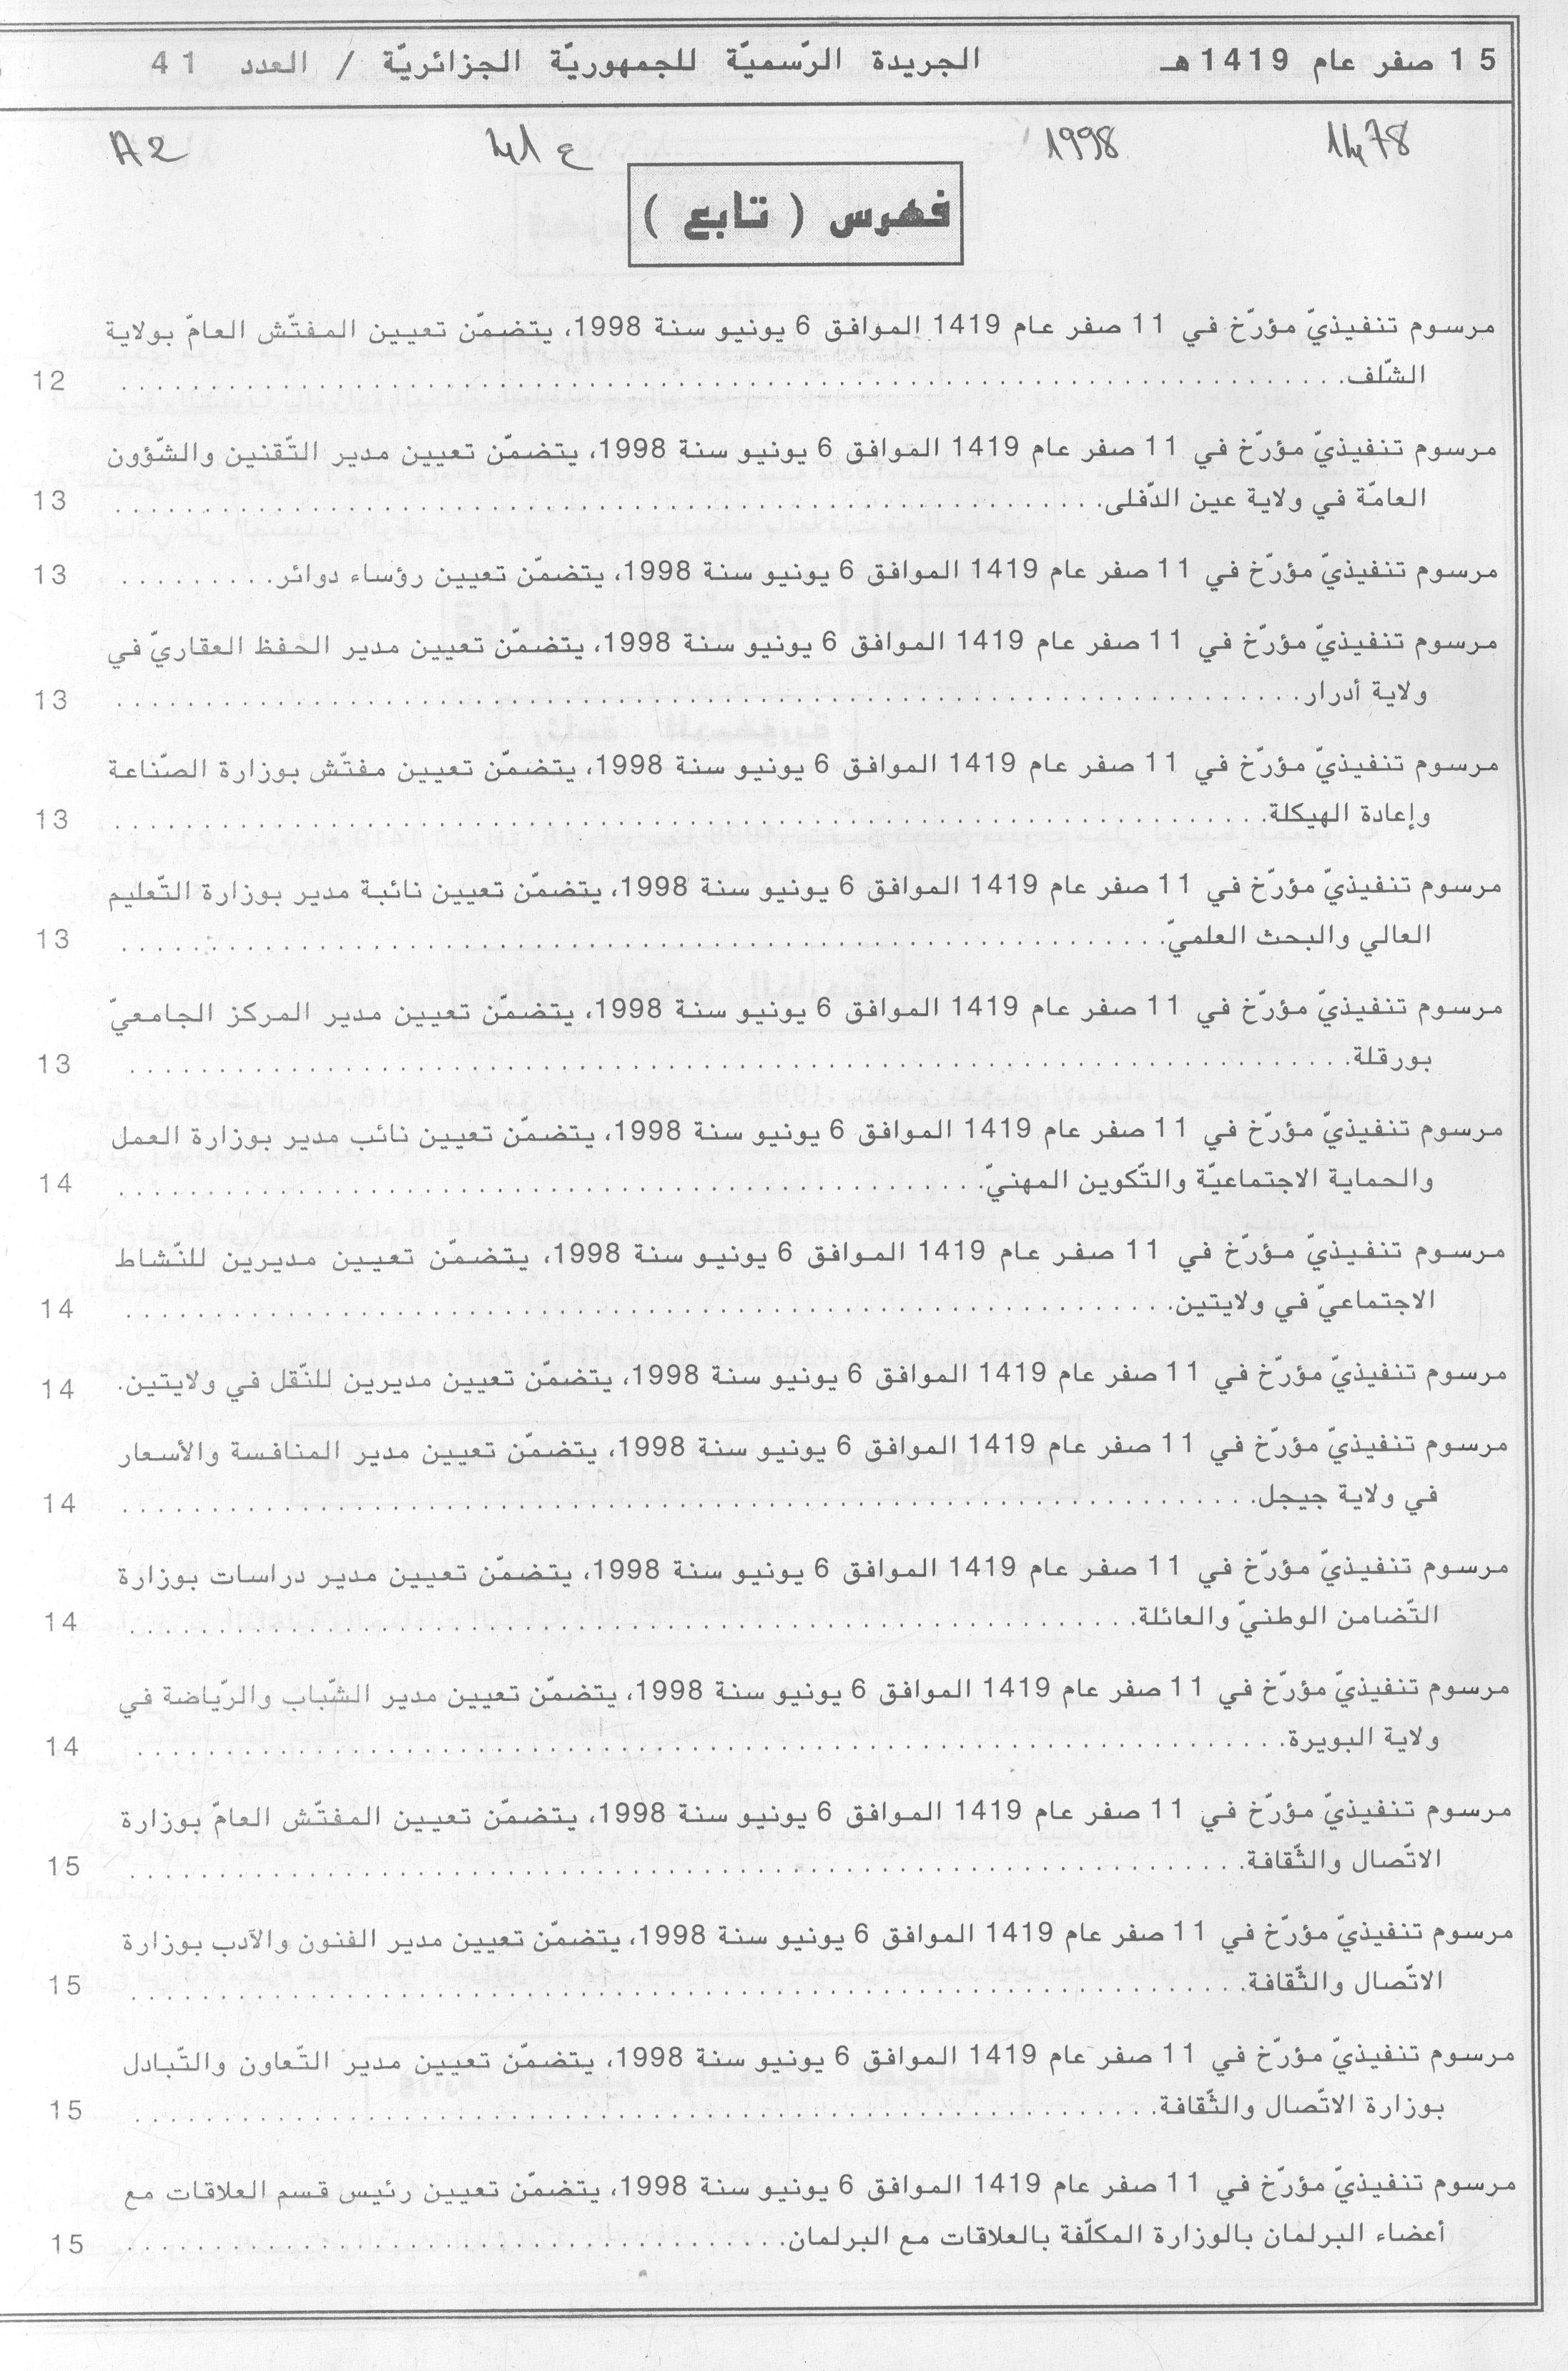 15 صفر عام 1419هـ الجريدة الرّسميّة للجمهوريّة الجزائريّة / العدد 41
1478 1998 ع 41 A2
فهرس ( تابع )
مرسوم تنفيذيّ مؤرّخ في 11 صفر عام 1419 الموافق 6 يونيو سنة 1998، يتضمّن تعيين المفتّش العامّ بولاية
الشّلف. 12
مرسوم تنفيذيّ مؤرّخ في 11 صفر عام 1419 الموافق 6 يونيو سنة 1998، يتضمّن تعيين مدير التّقنين والشّؤون
العامّة في ولاية عين الدّفلى. 13
مرسوم تنفيذيّ مؤرّخ في 11 صفر عام 1419 الموافق 6 يونيو سنة 1998، يتضمّن تعيين رؤساء دوائر. 13
مرسوم تنفيذيّ مؤرّخ في 11 صفر عام 1419 الموافق 6 يونيو سنة 1998، يتضمّن تعيين مدير الحفظ العقاريّ في
ولاية أدرار. 13
مرسوم تنفيذيّ مؤرّخ في 11 صفر عام 1419 الموافق 6 يونيو سنة 1998، يتضمّن تعيين مفتّش بوزارة الصّناعة
وإعادة الهيكلة. 13
مرسوم تنفيذيّ مؤرّخ في 11 صفر عام 1419 الموافق 6 يونيو سنة 1998، يتضمّن تعيين نائبة مدير بوزارة التّعليم
العالي والبحث العلميّ. 13
مرسوم تنفيذيّ مؤرّخ في 11 صفر عام 1419 الموافق 6 يونيو سنة 1998، يتضمّن تعيين مدير المركز الجامعيّ
بورقلة. 13
مرسوم تنفيذيّ مؤرّخ في 11 صفر عام 1419 الموافق 6 يونيو سنة 1998، يتضمّن تعيين نائب مدير بوزارة العمل
والحماية الاجتماعيّة والتّكوين المهنيّ. 14
مرسوم تنفيذيّ مؤرّخ في 11 صفر عام 1419 الموافق 6 يونيو سنة 1998، يتضمّن تعيين مديرين للنّشاط
الاجتماعيّ في ولايتين. 14
مرسوم تنفيذيّ مؤرّخ في 11 صفر عام 1419 الموافق 6 يونيو سنة 1998، يتضمّن تعيين مديرين للنّقل في ولايتين. 14
مرسوم تنفيذيّ مؤرّخ في 11 صفر عام 1419 الموافق 6 يونيو سنة 1998، يتضمّن تعيين مدير المنافسة والأسعار
في ولاية جيجل. 14
مرسوم تنفيذيّ مؤرّخ في 11 صفر عام 1419 الموافق 6 يونيو سنة 1998، يتضمّن تعيين مدير دراسات بوزارة
التّضامن الوطنيّ والعائلة. 14
مرسوم تنفيذيّ مؤرّخ في 11 صفر عام 1419 الموافق 6 يونيو سنة 1998، يتضمّن تعيين مدير الشّباب والرّياضة في
ولاية البويرة. 14
مرسوم تنفيذيّ مؤرّخ في 11 صفر عام 1419 الموافق 6 يونيو سنة 1998، يتضمّن تعيين المفتّش العامّ بوزارة
الاتّصال والثّقافة. 15
مرسوم تنفيذيّ مؤرّخ في 11 صفر عام 1419 الموافق 6 يونيو سنة 1998، يتضمّن تعيين مدير الفنون والآدب بوزارة
الاتّصال والثّقافة. 15
مرسوم تنفيذيّ مؤرّخ في 11 صفر عام 1419 الموافق 6 يونيو سنة 1998، يتضمّن تعيين مدير التّعاون والتّبادل
بوزارة الاتّصال والثّقافة. 15
مرسوم تنفيذيّ مؤرّخ في 11 صفر عام 1419 الموافق 6 يونيو سنة 1998، يتضمّن تعيين رئيس قسم العلاقات مع
أعضاء البرلمان بالوزارة المكلّفة بالعلاقات مع البرلمان. 15